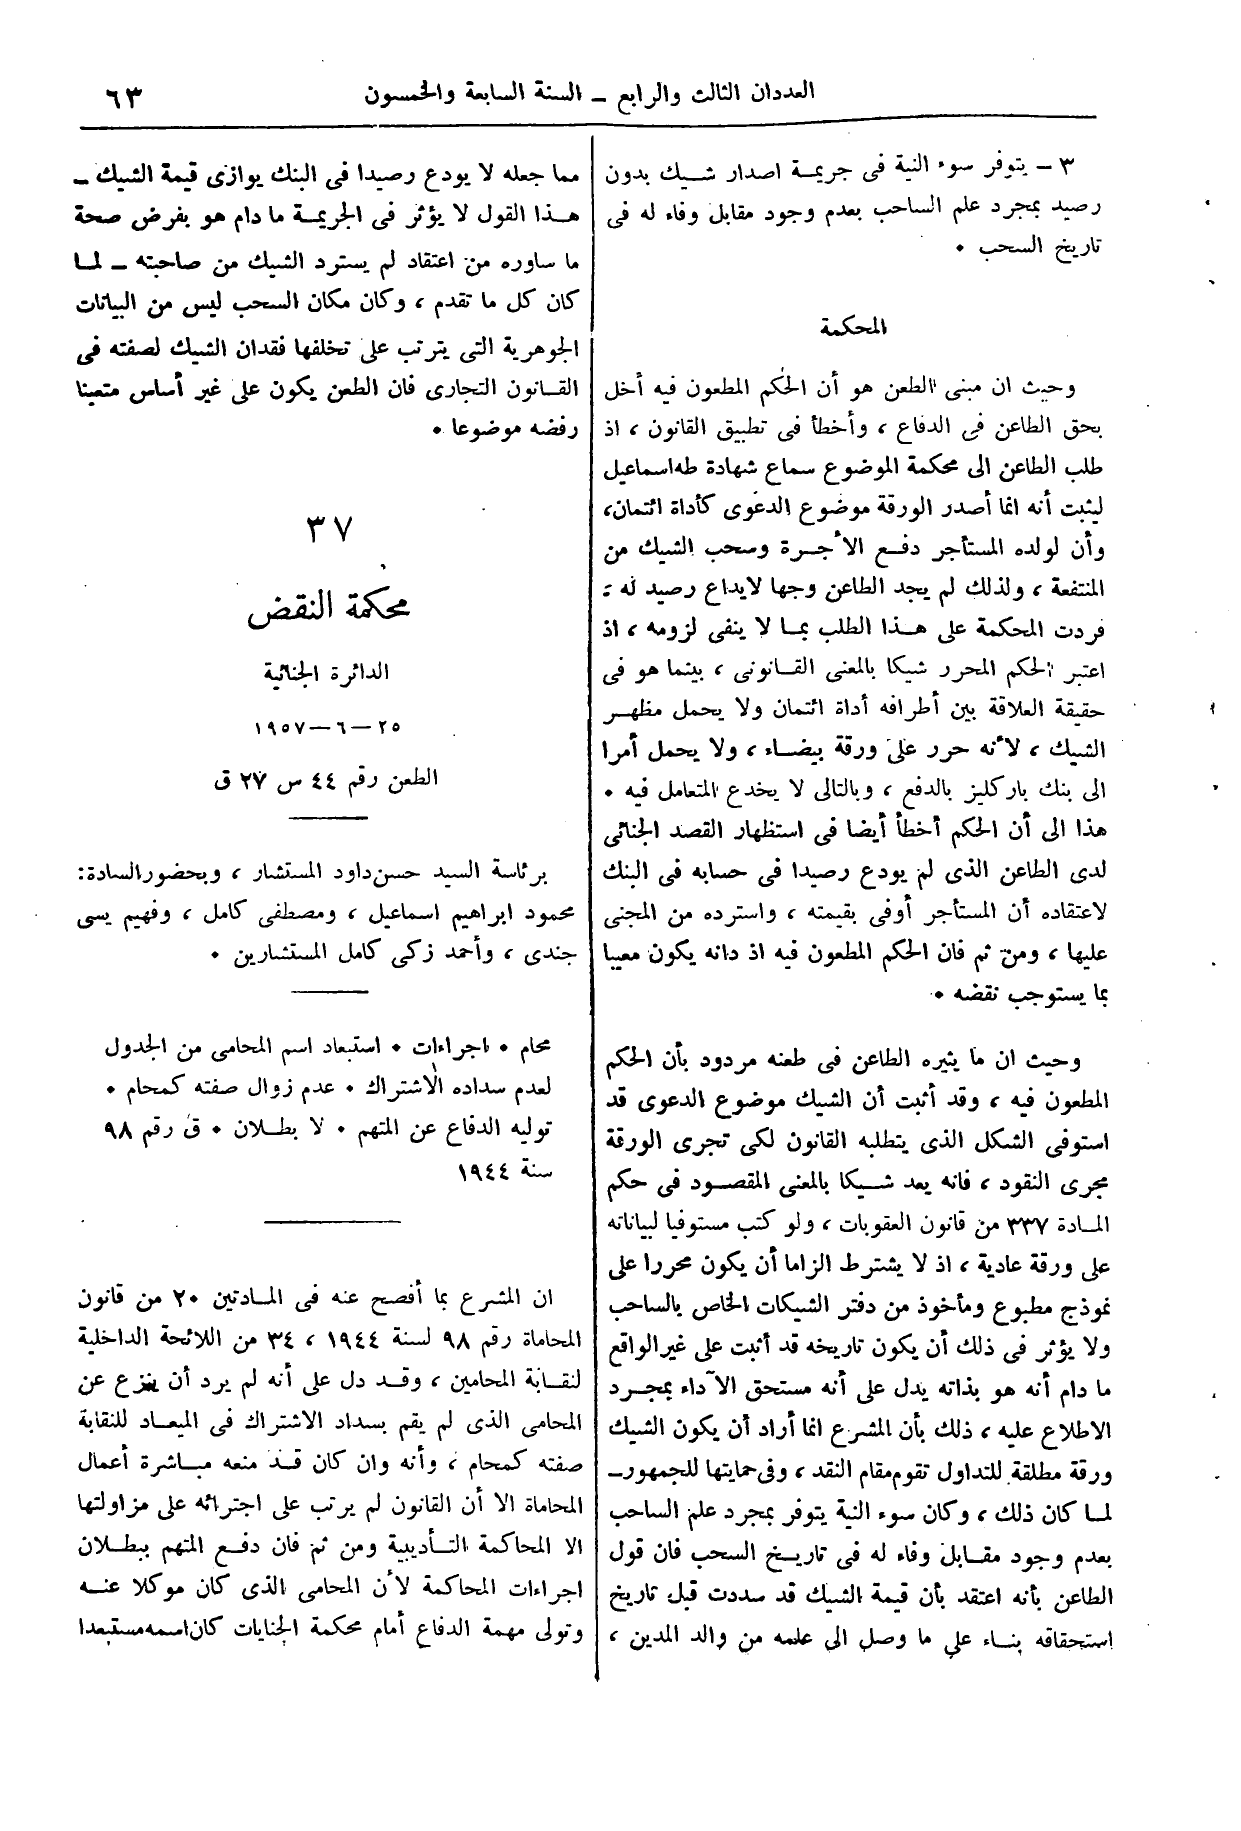 العددان الثالث والرابع – السنة السابعة والخمسون
٦٣
٣ – يتوفر سوء النية فى جريمة اصدار شيك بدون
رصيد بمجرد علم الساحب بعدم وجود مقابل وفاء له فى
تاريخ السحب .
المحكمة
وحيث ان مبنى الطعن هو أن الحكم المطعون فيه أخل
بحق الطاعن فى الدفاع ، وأخطأ فى تطبيق القانون ، اذ
طلب الطاعن الى محكمة الموضوع سماع شهادة طه اسماعيل
ليثبت أنه انما أصدر الورقة موضوع الدعوى كأداة ائتمان،
وأن لولده المستأجر دفع الأجرة وسحب الشيك من
المنتفعة ، ولذلك لم يجد الطاعن وجها لايداع رصيد له :
فردت المحكمة على هذا الطلب بما لا ينفى لزومه ، اذ
اعتبر الحكم المحرر شيكا بالمعنى القانونى ، بينما هو فى
حقيقة العلاقة بين أطرافه أداة ائتمان ولا يحمل مظهر
الشيك ، لأنه حرر على ورقة بيضاء ، ولا يحمل أمرا
الى بنك باركليز بالدفع ، وبالتالى لا يخدع المتعامل فيه .
هذا الى أن الحكم أخطأ أيضا فى استظهار القصد الجنائى
لدى الطاعن الذى لم يودع رصيدا فى حسابه فى البنك
لاعتقاده أن المستأجر أوفى بقيمته ، واسترده من المجنى
عليها ، ومن ثم فان الحكم المطعون فيه اذ دانه يكون معيبا
بما يستوجب نقضه .
وحيث ان ما يثيره الطاعن فى طعنه مردود بأن الحكم
المطعون فيه ، وقد أثبت أن الشيك موضوع الدعوى قد
استوفى الشكل الذى يتطلبه القانون لكى تجرى الورقة
مجرى النقود ، فانه يعد شيكا بالمعنى المقصود فى حكم
المادة ٣٣٧ من قانون العقوبات ، ولو كتب مستوفيا لبياناته
على ورقة عادية ، اذ لا يشترط الزاما أن يكون محررا على
نموذج مطبوع ومأخوذ من دفتر الشيكات الخاص بالساحب
ولا يؤثر فى ذلك أن يكون تاريخه قد أثبت على غير الواقع
ما دام أنه هو بذاته يدل على أنه مستحق الأداء بمجرد
الاطلاع عليه ، ذلك بأن المشرع انما أراد أن يكون الشيك
ورقة مطلقة للتداول تقوم مقام النقد ، وفى حمايتها للجمهور –
لما كان ذلك ، وكان سوء النية يتوفر بمجرد علم الساحب
بعدم وجود مقابل وفاء له فى تاريخ السحب فان قول
الطاعن بأنه اعتقد بأن قيمة الشيك قد سددت قبل تاريخ
استحقاقه بناء على ما وصل الى علمه من والد المدين ،
مما جعله لا يودع رصيدا فى البنك يوازى قيمة الشيك –
هذا القول لا يؤثر فى الجريمة ما دام هو بفرض صحة
ما ساوره من اعتقاد لم يسترد الشيك من صاحبته – لما
كان كل ما تقدم ، وكان مكان السحب ليس من البيانات
الجوهرية التى يترتب على تخلفها فقدان الشيك لصفته فى
القانون التجارى فان الطعن يكون على غير أساس متعينا
رفضه موضوعا .
٣٧
محكمة النقض
الدائرة الجنائية
٢٥–٦–١٩٥٧
الطعن رقم ٤٤ س ٢٧ ق
برئاسة السيد حسن داود المستشار ، وبحضور السادة:
محمود ابراهيم اسماعيل ، ومصطفى كامل ، وفهيم يسى
جندى ، وأحمد زكى كامل المستشارين .
محام . اجراءات . استبعاد اسم المحامى من الجدول
لعدم سداده الاشتراك . عدم زوال صفته كمحام .
توليه الدفاع عن المتهم . لا بطلان . ق رقم ٩٨
سنة ١٩٤٤
ان المشرع بما أفصح عنه فى المادتين ٢٠ من قانون
المحاماة رقم ٩٨ لسنة ١٩٤٤ ، ٣٤ من اللائحة الداخلية
لنقابة المحامين ، وقد دل على أنه لم يرد أن ينزع عن
المحامى الذى لم يقم بسداد الاشتراك فى الميعاد للنقابة
صفته كمحام ، وأنه وان كان قد منعه مباشرة أعمال
المحاماة الا أن القانون لم يرتب على اجترائه على مزاولتها
الا المحاكمة التأديبية ومن ثم فان دفع المتهم ببطلان
اجراءات المحاكمة لأن المحامى الذى كان موكلا عنه
وتولى مهمة الدفاع أمام محكمة الجنايات كان اسمه مستبعدا